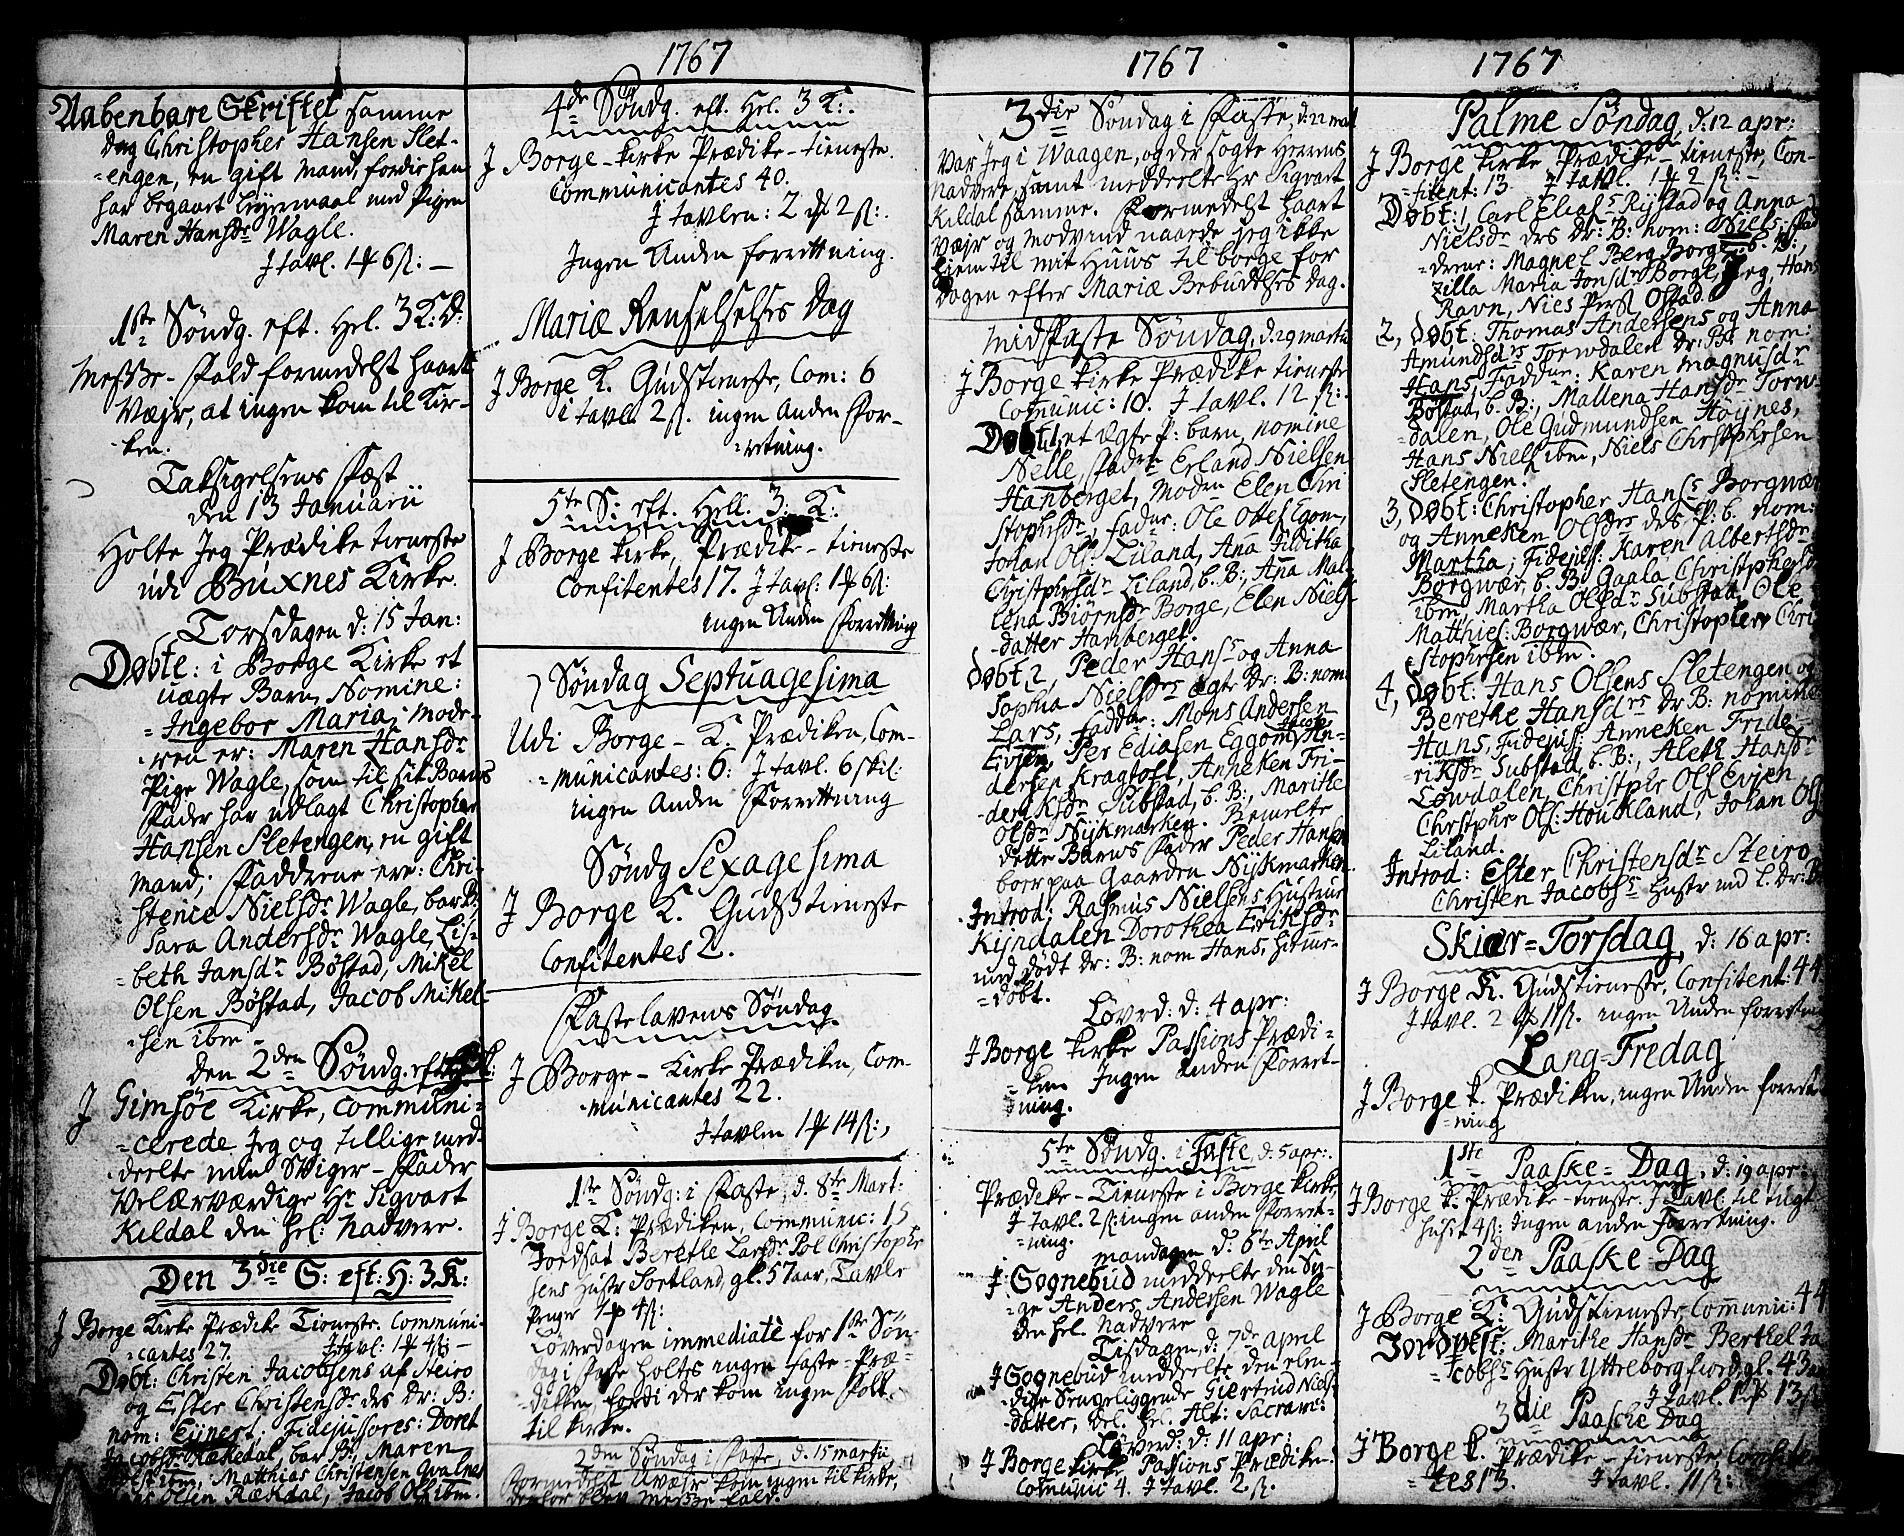 1767
Aabenbare Skriftet samme
Dag Christopher Hansen Slet-
=engen, en gift Mand, fordi han
har begaaet Leyermaal med Pigen
Maren Hansdr Wagle.
J tavl. 1 ꝕ 6 ß: —
1ste Søndg. eft. Hel. 3 K: D:
Messe-Fald formedelst haart
Vejr, at ingen kom til Kir-
ken.
Taksigelsens Fæst
den 13 Januarii
Holte Jeg Prædike tieneste
udi Buxnes Kirke.
Torsdagen d: 15 Jan:
Døbte: i Borge Kirke et
uægte Barn, Nomine:
=Ingebor Maria, Mode-
ren er: Maren Hansdr
Pige Wagle, som til sit Barns
Fader har udlagt Christopher
Hansen Sletengen, en gift
Mand; Fadderne ere: Chri-
stence Nielsdr Wagle, bar B:
Sara Andersdr Wagle, Lis-
=beth Jansdr Bøstad, Mikel
Olsen Bøstad, Jacob Mikel-
sen ibm.
Den 2den Søndg. eft.
J Gimsøe Kirke, communi-
=cerede Jeg og tillige med-
deelte min Sviger-Fader
Velærværdige Hr Sigvart
Kildal den hel. Nadvere.
Den 3die S: eft: H: 3 K:
J Borge Kirke Prædike Tieneste. Communi-
=cantes 27. J tavl: 1 ꝕ 4 ß: —
Døbt: Christen Jacobsens af Steiro
og Ester Christensdr des Dr: B:
nom: Ejnert. Fidejussores: Doret
Jacobsdr Rækedal, bar B:, Maren
ibm, Matthias Christensen Walnes
Olsen Rækdal, Jacob Ols ibm.
4de Søndg. eft. Hel. 3 K:
J Borge-Kirke Prædike-tieneste.
Communicantes 40.
J tavlen: 2 ꝕ 2 ß:.
Ingen Anden forrettning.
Mariæ Renselses Dag
J Borge K. Gudstieneste, Com: 6
i tavl. 2 ß. ingen Anden For-
=retning.
5te S: eft. Hell. 3: K:
J Borge Kirke, Prædike-tieneste
Confitentes 17. J tavl: 1 ꝕ 6 ß:
ingen Anden Forrettning
Søndag Septuagesima
Udi Borge-K. Prædiken, Com-
=municantes: 6: J tavl. 6 skil:
ingen Anden Forrettning
Søndg Sexagesima
J Borge K. Gudstieneste
Confitentes 2.
Fastelavens Søndag
J Borge-Kirke Prædiken, Com-
=municantes 22.
J tavlen 1 ꝕ 14 ß:,
1ste Søndg: i Faste, d. 8te Mart:
J Borge K: Prædiken, Communic: 15
Jordsat Berethe Larsdr Pol Christophr
sens Hustr Sortland, gl. 57 aar, Tavle
Penger 1 ꝕ 4 ß:
Løverdagen immediate for 1ste Søn-
dag i Faste holts ingen Faste-Præ-
diken, fordi der kom ingen Folk
til kirke.
2den Søndag i Faste, d. 15 martii
formedelst Uvejr kom ingen til kirke,
derfor blev Messe Fald.
1767
3die Søndag i Faste, d: 22 mart
Var Jeg i Waagen, og der søgte Herrens
Nadvere, samt meddeelte Hr Sigvart
Kildal samme. Formedelst haart
Vejr og Modvind naaede jeg ikke
hiem til mit Huus til borge for
dagen efter Mariæ Bebudelses Dag.
Midfaste Søndag, d: 29 martii
J Borge Kirke Prædike tieneste
Comunic: 10. J tavl. 12 ß:.
Døbt 1, et ægte P: barn, nomine
Nelle, Faderen Erland Nielsen
Hanberget, Moden Elen Chri
stophsdr, fadr: Ole Ottes Egom,
Johan Ols: Liland, Ana Hilditha
Christophsdr Liland, b. B:, Ana Mal-
lena Biørnsdr Borge, Elen Niels-
datter Hanberget.
Døbt 2, Peder Hanss og Anna
Sophia Nielsdrs ægte Dr: B: nom
Lars, Faddr: Mons Andersen
Evjen, Per Ediasen Eggom, Jacob An-
dersen Kragtoft, Anneken Fri-
deriksdr Substad, b. B:, Marithe
Olsdr Nykmarken. Bemelte
dette Barns Fader Peder Hansen
boer paa Gaarden Nykmarken.
Introd: Rasmus Nielsens Hustrue
Kyndalen Dorothea Eriksdr
med dødt Dr: B: nom Hans, hieme-
=døbt.
Løverd: d: 4 apr:
J Borge kirke Passions Prædi-
=ken Ingen anden Forret-
=ning.
5te Søndg. i Faste, d. 5 apr:.
Prædike-Tieneste i Borge Kirke,
J tavl. 2 ß: ingen anden Forret-
=ning.
mandagen d: 6te April
J Sognebud meddeelte den Sy-
=ge Anders Andersen Wagle
den hel. Nadvere
Tisdagen, d: 7de april
J Sognebud meddeelte den elen-
dige Sengeliggende Giertrud Niels-
datter, del. hel. Alt: Sacram:
Løverd: d: 11 apr:
J Borge Kirke Passions Prædiken
Comunic 4. J tavl. 2 ß.
1767
Palme Søndag, d: 12 apr:
J Borge kirke Prædike-tieneste, Con-
=fitent: 13. J tavl. 1 ꝕ 2 ß: —
Døbt: 1, Carl Eliass Rystad og Anna
Nielsdr des Dr: B: nom: Niels, Fad
derne: Magnel Berg Borge, b. B:,
Zilla Maria Jonsdr Borge, Jeg, Hans
Ravn, Nies Pers Ostad.
2, døbt: Thomas Andersens og Anna
Amundsdrs Torwdalen Dr: B: nom:
Hans, Faddr: Karen Magnusdr
Bøstad, b. B:, Mallena Hansdr Torw-
=dalen, Ole Gudmundsen Høynes,
Hans Niels ibm, Niels Christophsen
Sletengen.
3, døbt: Christopher Hanss Borgwær
og Anneken Olsdrs des P: b. nom:
Martha; Fidejuss: Karen Albertsdr
Borgwær, b. B: Gaala Christophersdr
ibm, Martha Olsdr Substad, Ole
Matthies: Borgwær, Christopher Chri
stophsen ibm.
4, døbt: Hans Olsens Sletengen og
Berethe Hansdrs Dr: B: nomine
Hans, Fidejuss: Anneken Fride-
=riksdr Substad, b. B:, Aleth Hansdr
Lowdalen, Christphr Ols Evjen
Christphr Ols: Houkland, Johan Ols
Liland.
Introd: Ester Christensdr Steiro
Christen Jacobss Hustr med l. Dr: B
Skiær=Torsdag, d: 16 apr:
J Borge K. Gudstieneste, Confitent: 44
J tavl. 2 ꝕ 11 ß. ingen Anden forretning
Lang=Fredag
J Borge k. Prædiken, ingen Anden forret
=ning
1ste Paaske=Dag, d: 19 apr:
J Borge k: Prædike-tieneste. J Tavl. til tugt
huset 4 ß: Ingen anden Forretning.
2den Paaske=Dag
J Borge K: Gudstieneste, Communic: 44
Jordfest: Marithe Hansdr Berthel Ja
=cobss Hustr Yttreborgfiord, gl. 43 aar
J tavl. 1 ꝕ 13 ß
3die Paasche Dag
J Borge k. Prædike-tieneste, Confiten
=tes 13. J tavl. 11 ß: